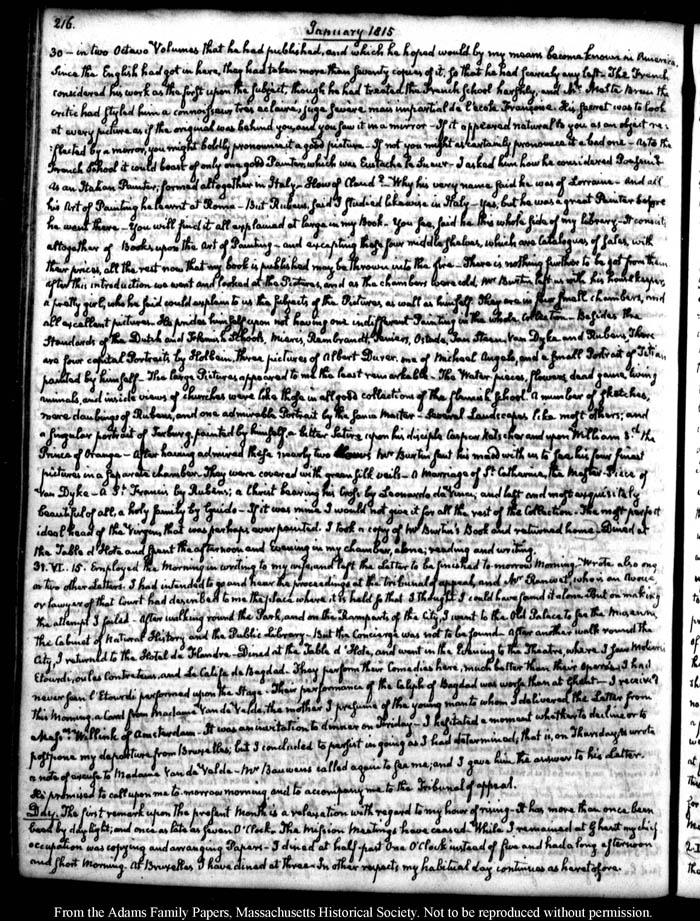 216.
January 1815
30 — in two Octavo Volumes that he had published, and which he hoped would by my means become known in America.
Since the English had got in here, they had taken more than seventy copies of it, so that he had scarcely any left. The French
considered his work as the first upon the subject, though he had treated the French School harshly, and Mr. Malte Brun the
critic had styled him a connoisseur tres eclairé, juge severe mais impartial de l'ecole Françoise. His secret was to look
at every picture as if the original was behind you, and you saw it in a mirror — If it appeared natural to you as an object re-
:flected by a mirror, you might boldly pronounce it a good picture — If not you might as certainly pronounce it a bad one — As to the
French School it could boast of only one good Painter, which was Eustache Le Sueur — I asked him how he considered Poussin?
As an Italian Painter; formed altogether in Italy — How of Claud? — Why his very name said he was of Lorraine — and all
his Art of Painting he learnt at Rome — But Rubens, said I studied likewise in Italy — Yes, but he was a great Painter before
he went there — You will find it all explained at large in my Book — You see, said he this whole side of my library — It consists
altogether of Books upon the Art of Painting — and excepting these four middle shelves, which are Catalogues of sales, with
their prices, all the rest now that my book is published may be thrown into the fire — There is nothing further to be got from them
After this introduction we went and looked at the Pictures, and as the chambers were cold, Mr Burtin left us with his housekeeper,
a pretty girl, who he said could explain to us the subjects of the Pictures, as well as himself. They are in few small chambers, and
all excellent pictures. He prides himself upon not having one indifferent Painting in the whole Collection — Besides the
Standards of the Dutch and Flemish Schools, Mieris, Rembrandt, Teniers, Ostade, Jan Steen, Van Dyke and Rubens, There
are four capital Portraits by Holbein, three pictures of Albert Durer, one of Michael Angelo, and a small Portrait of Titian
painted by himself — The large Pictures appeared to me the least remarkable. The Water pieces, flowers, dead game, living
animals, and inside views of churches were like those in all good collections of the flemish School. A number of sketches,
mere daubings of Rubens, and one admirable Portrait by the same Master — Several Landscapes like most others; and
a singular portrait of Terburg, painted by himself, a bitter satire upon his disciple Caspar Netscher and upon William 3d. the
Prince of Orange — After having admired these nearly two hours Mr Burtin sent his maid with us to see his four finest
pictures in a separate chamber. They were covered with green silk veils — A Marriage of St Catherine, the Master-Piece of
Van Dyke — A St Francis by Rubens; a Christ bearing his Cross by Leonardo da Vinci, and last and most exquisitely
beautiful of all, a holy family by Guido — If it was mine I would not give it for all the rest of the Collection. The most perfect
ideal head of the Virgin, that was perhaps ever painted. I took a copy of Mr Burtin's Book and returned home — Dined at
the Table d'Hote and spent the afternoon and evening in my chamber, alone; reading and writing.
31. VI. 15. Employed the Morning in writing to my wife, and left the Letter to be finished to-morrow Morning. Wrote also one
or two other Letters. I had intended to go and hear the proceedings at the tribunal of appeal, and Mr. who is an Avoué,
or lawyer of that Court had described to me the place where it is held so that I thought I could have found it alone. But on making
the attempt I failed — After walking round the Park, and on the Ramparts of the City, I went to the Old Palace to see the Museum
the Cabinet of Natural History, and the Public Library — But the Concierge was not to be found. After another walk round the
City, I returned to the Hotel de Flandre — Dined at the Table d'Hote, and went in the Evening to the Theatre, where I saw Moliere's
Etourdi, ou les Contretems, and Le Calife de Bagdad. They perform their Comedies here, much better than their Operas. I had
never seen l'Etourdi performed upon the Stage — Their performance of the Caliph of Bagdad was worse than at Ghent — I received
this Morning a Card from Madame Van de Velde, the mother I presume of the young man to whom I delivered the Letter from
Messrs. Willink of Amsterdam. It was an invitation to dinner on Friday. I hesitated a moment whether to decline or to
postpone my departure from Bruxelles; but I concluded to persist in going as I had determined, that is, on Thursday, & wrote
a note of excuse to Madame Van de Velde — Mr Bauwens called again to see me; and I gave him the answer to his Letter.
He promised to call upon me to-morrow morning and to accompany me to the Tribunal of appeal.
Day. The first remark upon the present Month is a relaxation with regard to my hour of rising — It has more than once been
by daylight; and once as late as seven O'Clock. The Mission Meetings have ceased. While I remained at Ghent my chief
occupation was copying and arranging Papers — I dined at half past One O'Clock instead of five and had a long afternoon
and short Morning. At Bruxelles I have dined at three — In other respects my habitual day continues as heretofore.
From the Adams Family Papers, Massachusetts Historical Society. Not to be reproduced without permission.